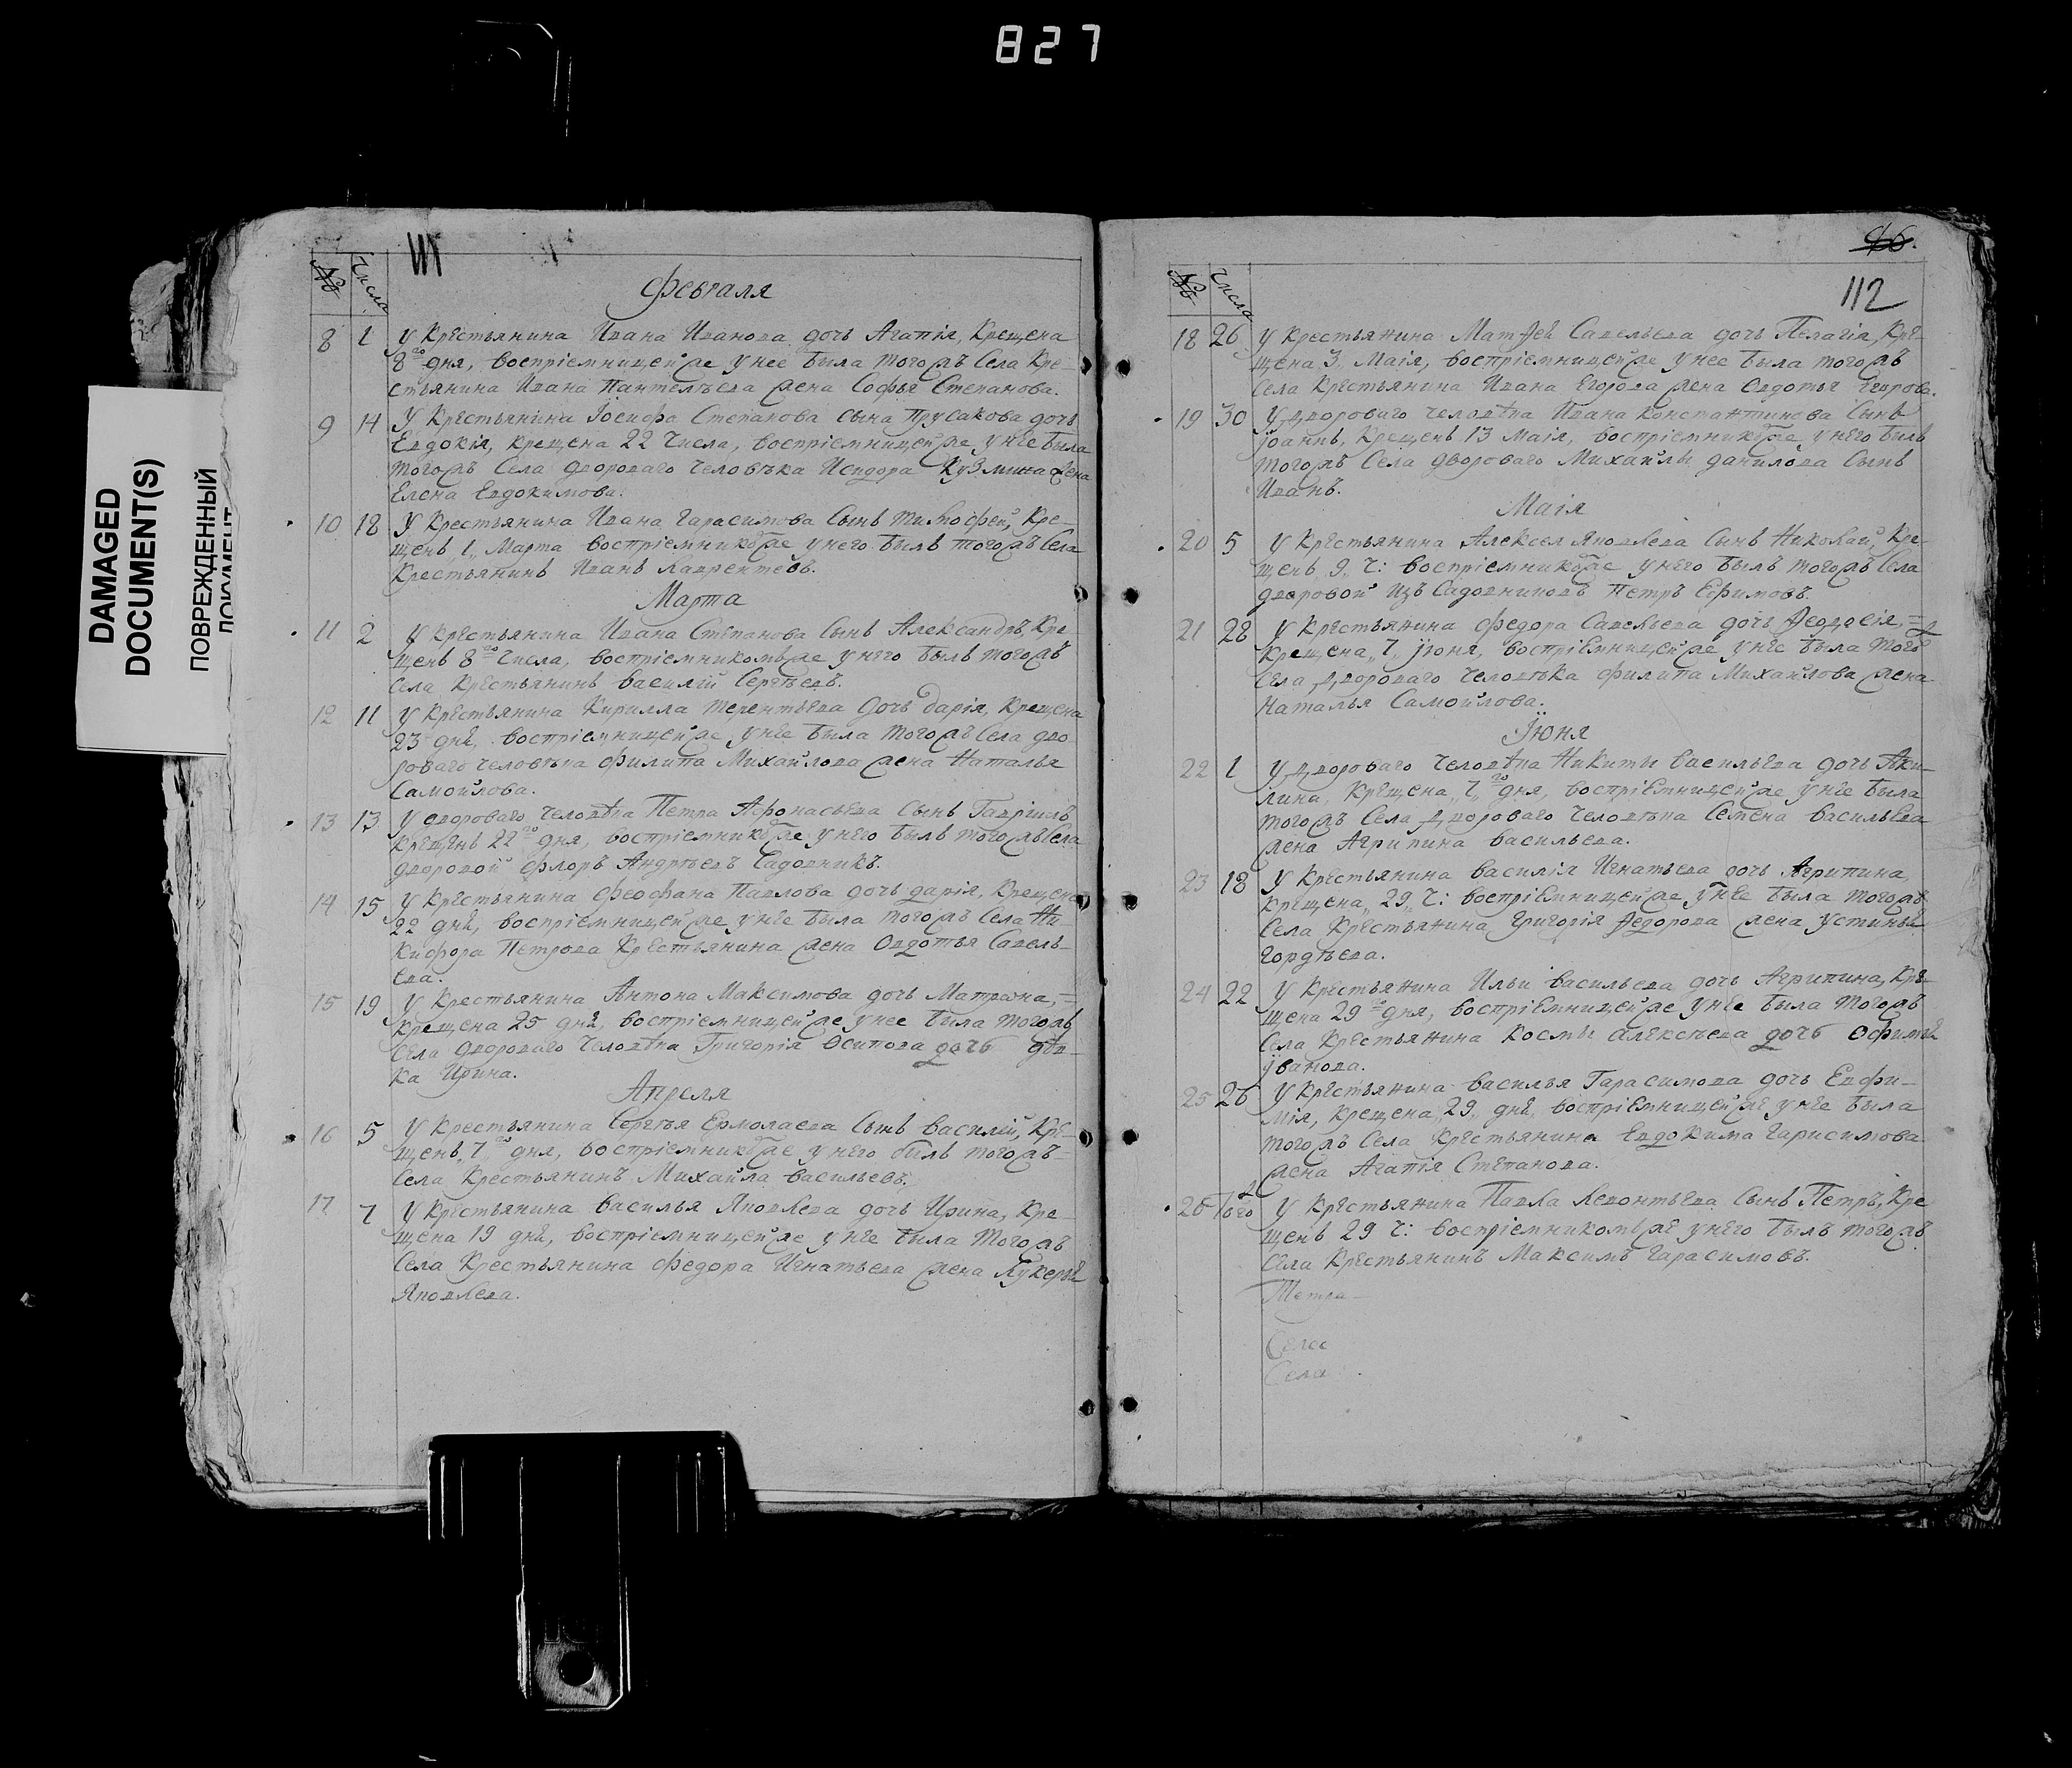 827
DAMAGED
DOCUMENT(S)
ПОВРЕЖДЕННЫЙ
ДОКУМЕНТ
111
№ Числа
Февраля
8 1 У Крестьянина Ивана Иванова дочь Агапія, Крещена
8го дня, воспріемницейже у нее была тогожъ Села Кре-
стьянина Ивана Пантелѣева жена Софья Степанова.
9 14 У Крестьянина Іосифа Степанова сына Прусакова дочь
Евдокія, крещена 22 числа, воспріемницейже у нее была
тогожъ Села двороваго человѣка Исидора Кузмина жена
Елена Евдокимова.
10 18 У Крестьянина Ивана Гарасимова Сынъ Тимофей, Кре-
щенъ 1 Марта воспріемникомже у него былъ тогожъ Села
Крестьянинъ Иванъ Лаврентьевъ.
Марта
11 2 У Крестьянина Ивана Степанова Сынъ Александръ, Кре-
щенъ 8го числа, воспріемникомъже у него былъ тогожъ
Села Крестьянинъ Василій Сергѣевъ.
12 11 У Крестьянина Кирилла Терентьева дочь Дарія, Крещена
23 дня, воспріемницейже у нее была тогожъ Села дво-
роваго человѣка Филипа Михайлова жена Наталья
Самойлова.
13 13 У двороваго человѣка Петра Афонасьева Сынъ Гавріилъ
Крещенъ 22го дня, воспріемникомже у него былъ тогожъ Села
дворовой Флоръ Андрѣевъ Садовникъ.
14 15 У Крестьянина Феофана Павлова дочь Дарія, Крещена
22 дня, воспріемницейже у нее была тогожъ Села Ни-
кифора Петрова Крестьянина жена Овдотья Савель-
ева.
15 19 У Крестьянина Антона Максимова дочь Матрона, =
Крещена 25 дня, воспріемницейже у нее была тогожъ
Села двороваго человѣка Григорія Осипова дочь дѣв-
ка Ирина.
Апреля
16 5 У Крестьянина Сергѣя Ермолаева Сынъ Василій, Кре-
щенъ 7го дня, воспріемникомже у него былъ тогожъ
Села Крестьянинъ Михайла Васильевъ.
17 7 У Крестьянина Василья Яковлева дочь Ирина, Кре-
щена 19 дня, воспріемницейже у нее была тогожъ
Села Крестьянина Федора Игнатьева жена Лукерья
Яковлева.
112
№ Числа
18 26 У Крестьянина Матѳея Савельева дочь Пелагія, Кре-
щена 3 Маія, воспріемницейже у нее была тогожъ
Села Крестьянина Ивана Егорова жена Евдотья
19 30 У двороваго человѣка Ивана Константинова Сынъ
Іоаннъ, Крещенъ 13 Маія, воспріемникомже у него былъ
тогожъ Села двороваго Михайлы Данилова Сынъ
Иванъ.
Маія
20 5 У Крестьянина Алексея Яковлева Сынъ Николай, Кре-
щенъ 9 ч: воспріемникомже у него былъ тогожъ Села
дворовой изъ Садовниковъ Петръ Ефимовъ.
21 28 У Крестьянина Федора Савельева дочь Ѳеодосія, =
Крещена 7 Іюня, воспріемницейже у нее была того
Села двороваго человѣка Филипа Михайлова жена
Наталья Самойлова.
Іюня
22 1 У двороваго человѣка Никиты Васильева дочь Аки-
лина, Крещена 7го дня, воспріемницейже у нее была
тогожъ Села двороваго человѣка Семена Васильева
жена Агрипина Васильева.
23 18 У Крестьянина Василія Игнатьева дочь Агрипина,
Крещена 29 ч: воспріемницейже у нее была тогожъ
Села Крестьянина Григорія Ѳедорова жена Устинья
Гордѣева.
24 22 У Крестьянина Ильи Васильева дочь Агрипина, Кре-
щена 29го дня, воспріемницейже у нее была тогожъ
Села Крестьянина Космы Алексѣева дочь Офимья
Іванова.
25 26 У Крестьянина Василья Гарасимова дочь Евфи-
мія, Крещена 29 дня, воспріемницейже у нее была
тогожъ Села Крестьянина Евдокима Гарисимова
жена Агапія Степанова.
26 У Крестьянина Павла Леонтьева Сынъ Петръ, Кре
щенъ 29 ч: воспріемникомъже у него былъ тогожъ
Села Крестьянинъ Максимъ Гарасимовъ.
Села